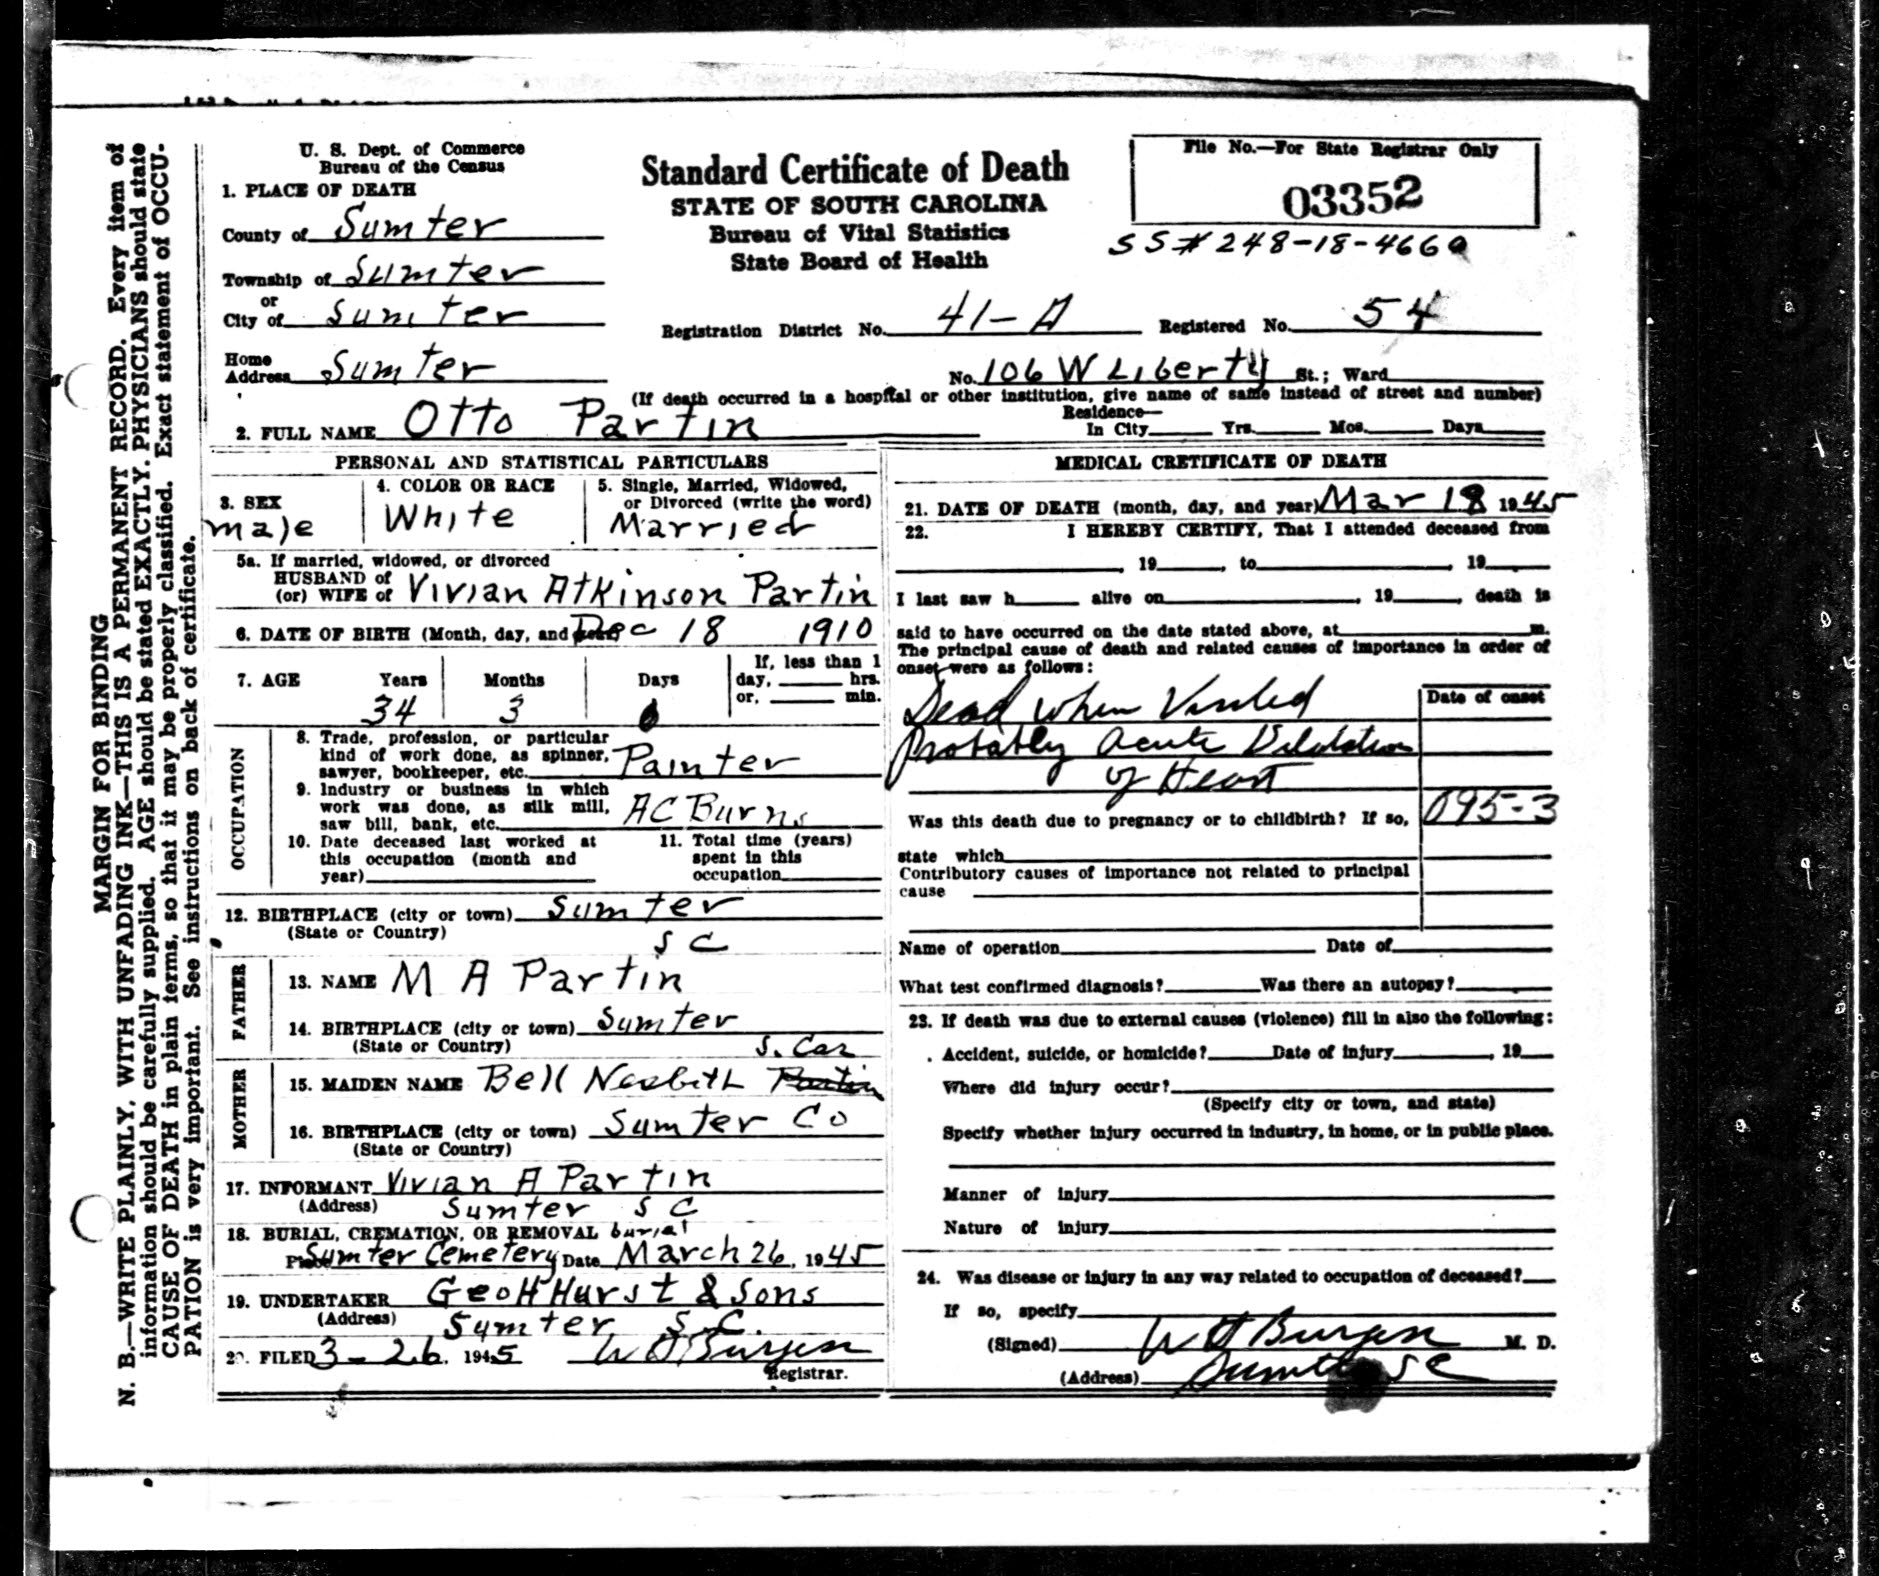 MARGIN FOR BINDING
N. B.—WRITE PLAINLY, WITH UNFADING INK—THIS IS A PERMANENT RECORD. Every item of
information should be carefully supplied. AGE should be stated EXACTLY. PHYSICIANS should state
CAUSE OF DEATH in plain terms, so that it may be properly classified. Exact statement of OCCU-
PATION is very important. See instructions on back of certificate.
U. S. Dept. of Commerce
Bureau of the Census
Standard Certificate of Death
STATE OF SOUTH CAROLINA
Bureau of Vital Statistics
State Board of Health
File No.—For State Registrar Only
03352
SS# 248-18-4660
1. PLACE OF DEATH
County of Sumter
Township of Sumter
or
City of Sumter
Registration District No. 41-A Registered No. 54
Home
Address Sumter
No. 106 W Liberty St.; Ward
(If death occurred in a hospital or other institution, give name of same instead of street and number)
2. FULL NAME Otto Partin
Residence—
In City Yrs. Mos. Days
PERSONAL AND STATISTICAL PARTICULARS
3. SEX
male
4. COLOR OR RACE
White
5. Single, Married, Widowed,
or Divorced (write the word)
Married
5a. If married, widowed, or divorced
HUSBAND of
(or) WIFE of Vivian Atkinson Partin
6. DATE OF BIRTH (Month, day, and Dec 18 1910
7. AGE Years Months Days
34 3 0
If, less than 1
day, hrs.
or, min.
OCCUPATION
8. Trade, profession, or particular
kind of work done, as spinner,
sawyer, bookkeeper, etc. Painter
9. Industry or business in which
work was done, as silk mill,
saw bill, bank, etc. AC Burns
10. Date deceased last worked at
this occupation (month and
year)
11. Total time (years)
spent in this
occupation
12. BIRTHPLACE (city or town) Sumter
(State or Country) S C
FATHER
13. NAME M A Partin
14. BIRTHPLACE (city or town) Sumter
(State or Country) S. Car
MOTHER
15. MAIDEN NAME Bell Nesbith Partin
16. BIRTHPLACE (city or town) Sumter Co
(State or Country)
17. INFORMANT Vivian A Partin
(Address) Sumter S C
18. BURIAL, CREMATION, OR REMOVAL burial
Place Sumter Cemetery Date March 26, 1945
19. UNDERTAKER Geo H Hurst & Sons
(Address) Sumter S.C.
20. FILED 3-26, 1945 W H Burgess
Registrar.
MEDICAL CRETIFICATE OF DEATH
21. DATE OF DEATH (month, day, and year) Mar 18 1945
22. I HEREBY CERTIFY, That I attended deceased from
, 19 , to , 19
I last saw h alive on , 19 , death is
said to have occurred on the date stated above, at m.
The principal cause of death and related causes of importance in order of
onset were as follows:
Date of onset
Dead when Visited
Probably acute Dilatation
of Heart
095-3
Was this death due to pregnancy or to childbirth? If so,
state which
Contributory causes of importance not related to principal
cause
Name of operation Date of
What test confirmed diagnosis? Was there an autopsy?
23. If death was due to external causes (violence) fill in also the following:
Accident, suicide, or homicide? Date of injury , 19
Where did injury occur?
(Specify city or town, and state)
Specify whether injury occurred in industry, in home, or in public place.
Manner of injury
Nature of injury
24. Was disease or injury in any way related to occupation of deceased?
If so, specify
(Signed) W H Burgess M. D.
(Address) Sumter SC